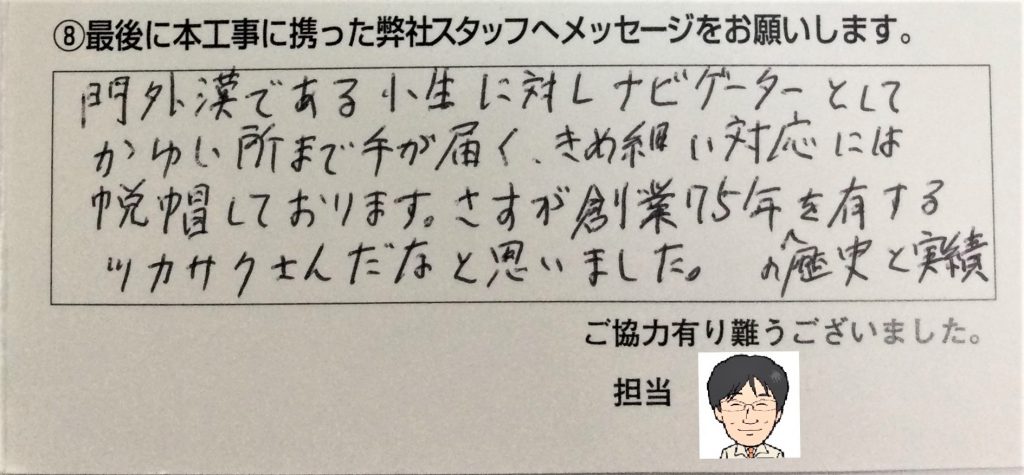 ⑧最後に本工事に携った弊社スタッフへメッセージをお願いします。
門外漢である小生に対しナビゲーターとして
かゆい所まで手が届く、きめ細い対応には
脱帽しております。さすが創業75年を有する
ツカサクさんだなと思いました。 の歴史と実績
ご協力有り難うございました。
担当